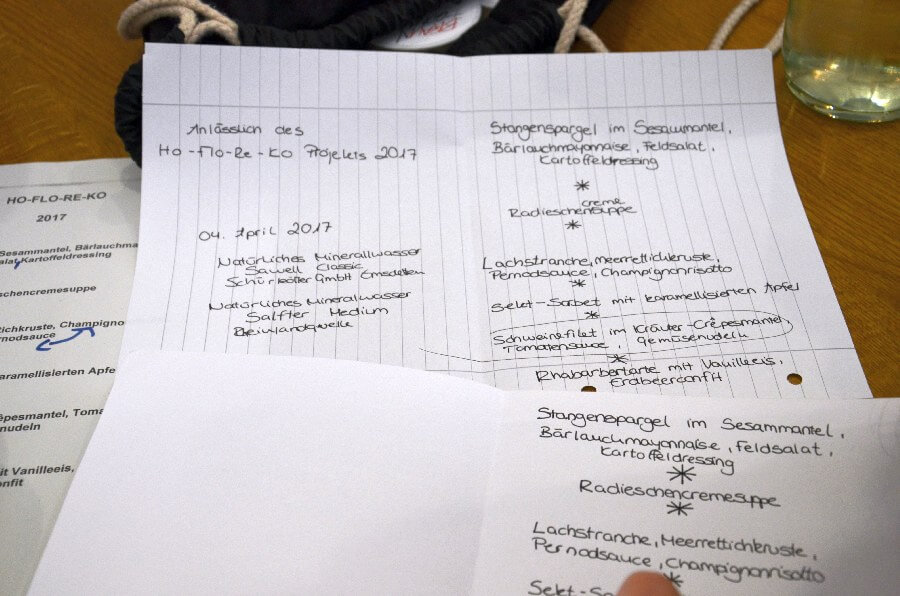 HO-FLO-RE-KO
2017
Sesammantel, Bärlauchma
Kartoffeldressing
schencremesuppe
ichkruste, Champigno
nodsauce
aramellisierten Apfe
êpesmantel, Toma
nudeln
it Vanilleeis,
onfit
Anlässlich des
Ho-Flo-Re-Ko Projekts 2017
04. April 2017
Natürliches Minerallwasser
Sawell Classic
GmbH Emsdetten
Natürliches Minerallwasser
Salfter Medium
Stangenspargel im Sesammantel,
Bärlauchmayonnaise, Feldsalat,
Kartoffeldressing
*
creme
Radieschensuppe
*
Lachstranche, meerrettichkruste,
Pernodsauce, Champignonrisotto
*
Sekt-Sorbet mit karamellisierten Apfel
*
Schweinefilet im Kräuter-Crêpesmantel,
Tomatensauce, Gemüsenudeln
*
Rhabarbertarte mit Vanilleeis,
Erdbeerconfit
Stangenspargel im Sesammantel,
Bärlauchmayonnaise, Feldsalat,
Kartoffeldressing
*
Radieschencremesuppe
*
Lachstranche, Meerrettichkruste,
Pernodsauce, Champignonrisotto
*
Sekt-So